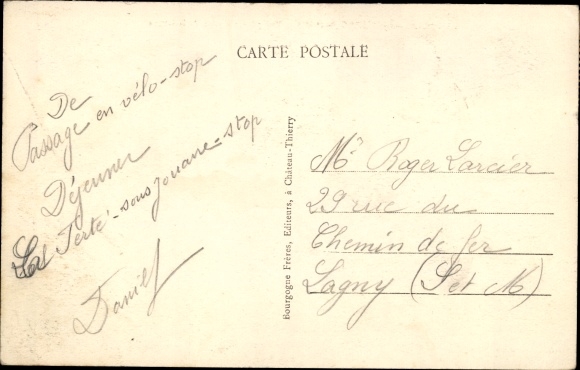 CARTE POSTALE
De
Passage en vélo-stop
Déjeuner
La Ferté-sous Jouarre-stop
Daniel
Bourgogne Frères, Editeurs, à Château-Thierry
Mr Roger Larcier
29 rue du
Chemin de fer
Lagny (S et M)